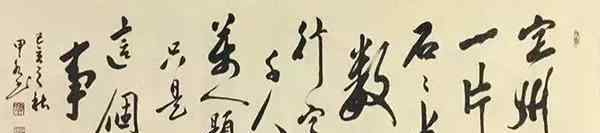 定州
一片
石〻上
数
行字
千人
萬人題
只是
這個
事
己亥之秋
甲